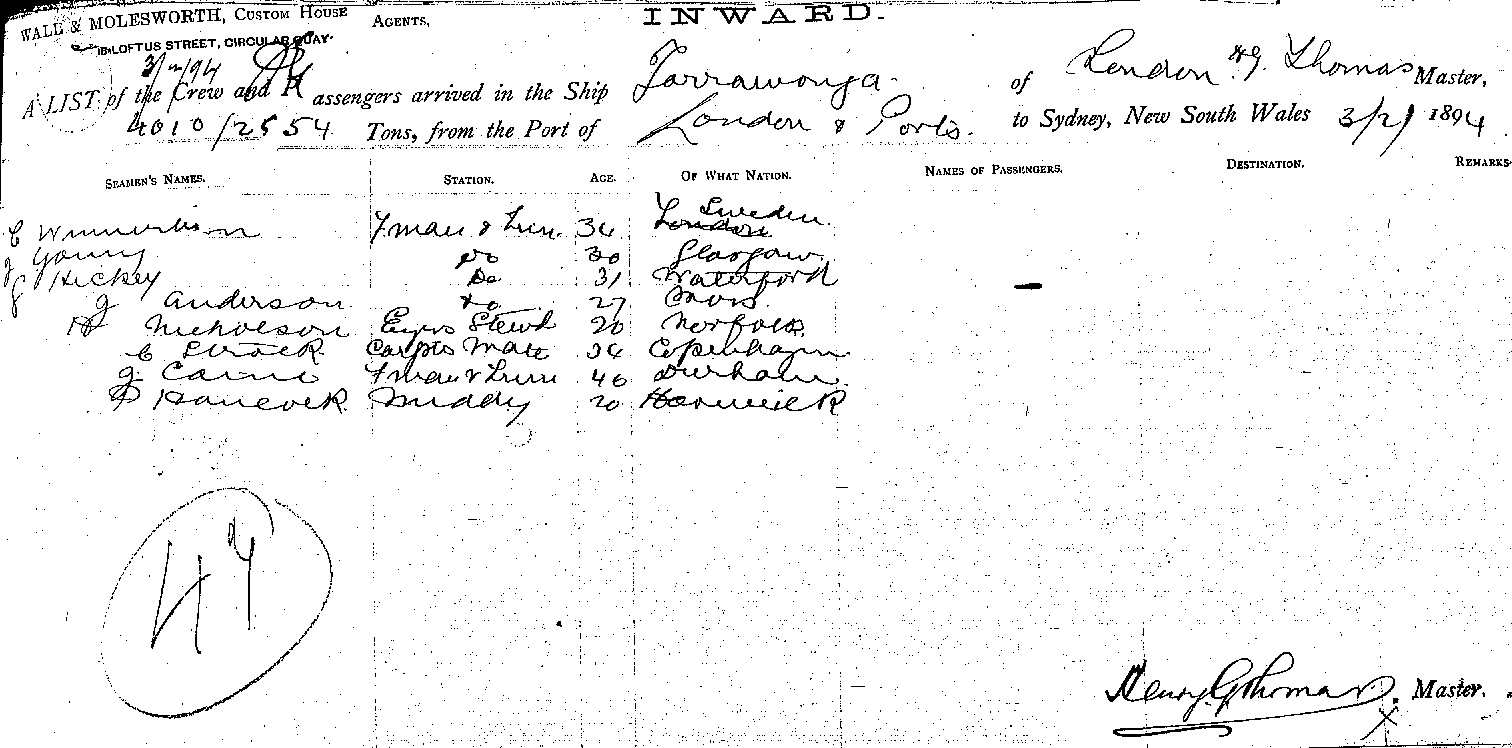 INWARD.
WALL & MOLESWORTH, CUSTOM HOUSE AGENTS,
LOFTUS STREET, CIRCULAR QUAY
3/2/94
A LIST of the Crew and Passengers arrived in the Ship Tarrawonga of London H.G. Thomas Master,
4010/2554 Tons, from the Port of London & Ports. to Sydney, New South Wales 3/2/1894
SEAMEN'S NAMES. STATION. AGE. OF WHAT NATION. NAMES OF PASSENGERS. DESTINATION. REMARKS
Sweden
C F'man & Trim 34 London
J Young do 30 Glasgow
Hickey Do 31 Waterford
J Anderson do 27
Nicholson Engrs Stewd 20 Norfolk
C Carptrs Mate 34 Copenhagen
J F'man & Trim 40 Durham
Hancock Middy 20
47
Henry G Thomas. Master.